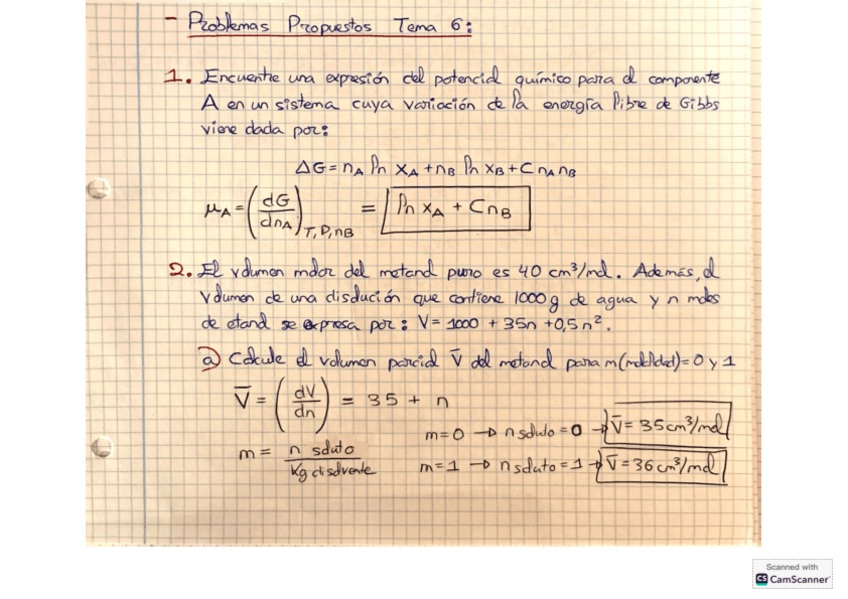 - Problemas Propuestos Tema 6:
1. Encuentre una expresión del potencial químico para el componente
A en un sistema cuya variación de la energía libre de Gibbs
viene dada por:
ΔG = nA ln xA + nB ln xB + C nA nB
μA = (dG/dnA)T,P,nB = ln xA + C nB
2. El volumen molar del metanol puro es 40 cm³/mol. Además, el
volumen de una disolución que contiene 1000 g de agua y n moles
de etanol se expresa por: V = 1000 + 35n + 0,5 n².
a) Calcule el volumen parcial V̄ del metanol para m (molalidad) = 0 y 1
V̄ = (dV/dn) = 35 + n
m = 0 → n soluto = 0 → V̄ = 35 cm³/mol
m = n soluto / Kg disolvente
m = 1 → n soluto = 1 → V̄ = 36 cm³/mol
Scanned with
CS CamScanner